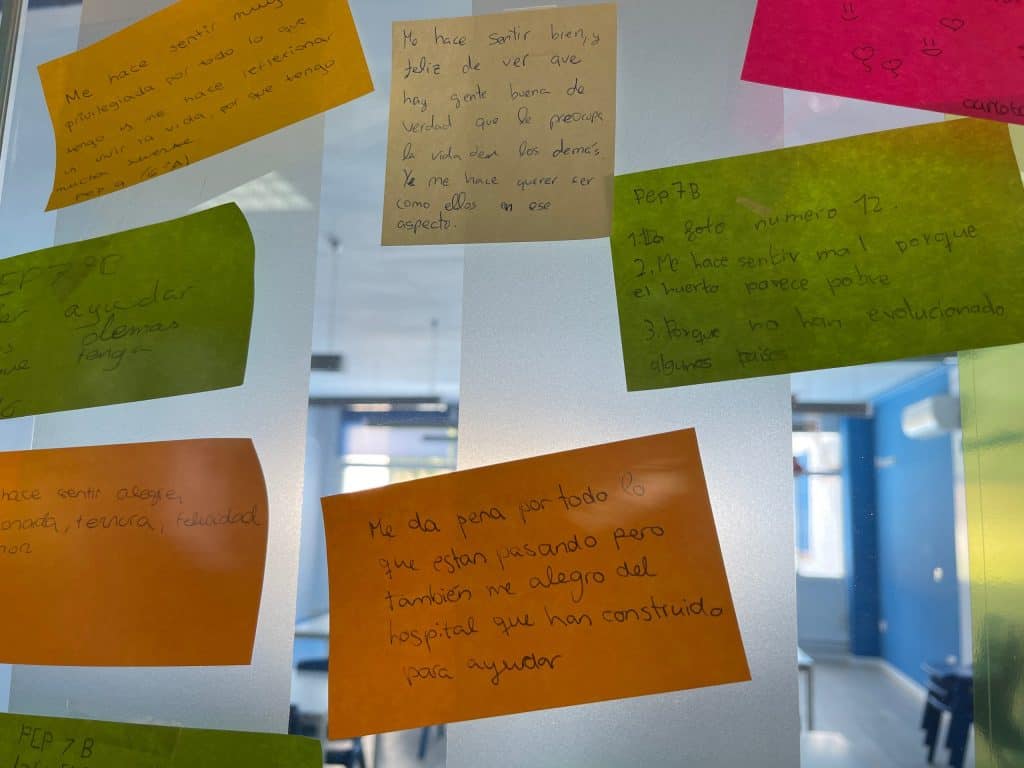 Me hace sentir muy
privilegiada por todo lo que
tengo y me hace reflexionar
vivir la vida, por que tengo
mucha suerte
Me hace sentir bien, y
feliz de ver que
hay gente buena de
verdad que le preocupa
la vida de los demás.
Ya me hace querer ser
como ellos en ese
aspecto.
PEP 7B
1. La foto numero 12.
2. Me hace sentir mal porque
el huerto parece pobre
3. Porque no han evolucionado
algunos paises
ayudar
demas
teng
hace sentir alegre,
onada, ternura, felicidad
Me da pena por todo lo
que estan pasando pero
también me alegro del
hospital que han construido
para ayudar
PEP 7 B